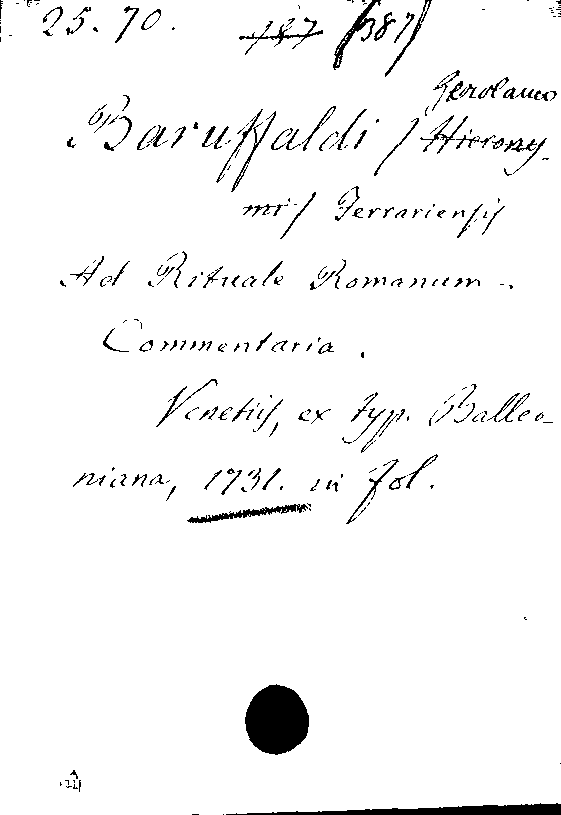 25.70. 187 (387)
Gerolamo
Baruffaldi / Hierony-
mi / Ferrariensis
Ad Rituale Romanum -.
Commentaria.
Venetiis, ex typ. Balleo-
niana, 1731. in fol.